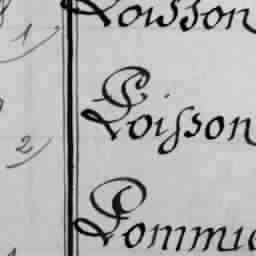 Poisson
1
Poisson
2
Pommi